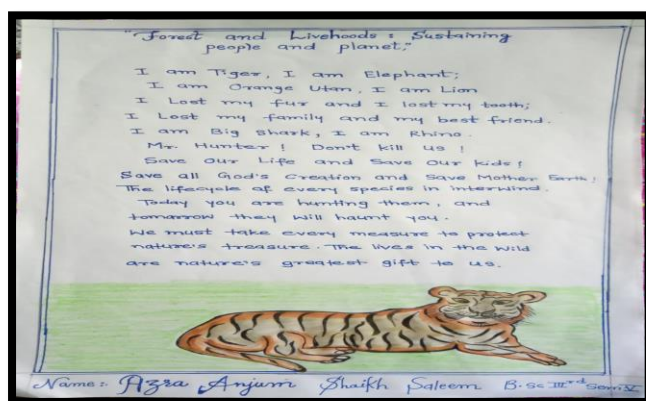 "Forest and Livehoods: Sustaining
people and planet."
I am Tiger, I am Elephant;
I am Orange Utan, I am Lion
I Lost my fur and I lost my tooth;
I Lost my family and my best friend.
I am Big Shark, I am Rhino.
Mr. Hunter! Don't kill us!
Save Our Life and Save Our kids!
Save all God's Creation and Save Mother Earth!
The lifecycle of every species in interwind.
Today you are hunting them, and
tomorrow they will haunt you.
We must take every measure to protect
nature's treasure. The lives in the wild
are nature's greatest gift to us.
Name:- Azra Anjum Shaikh Saleem B.Sc IIIrd Sem V